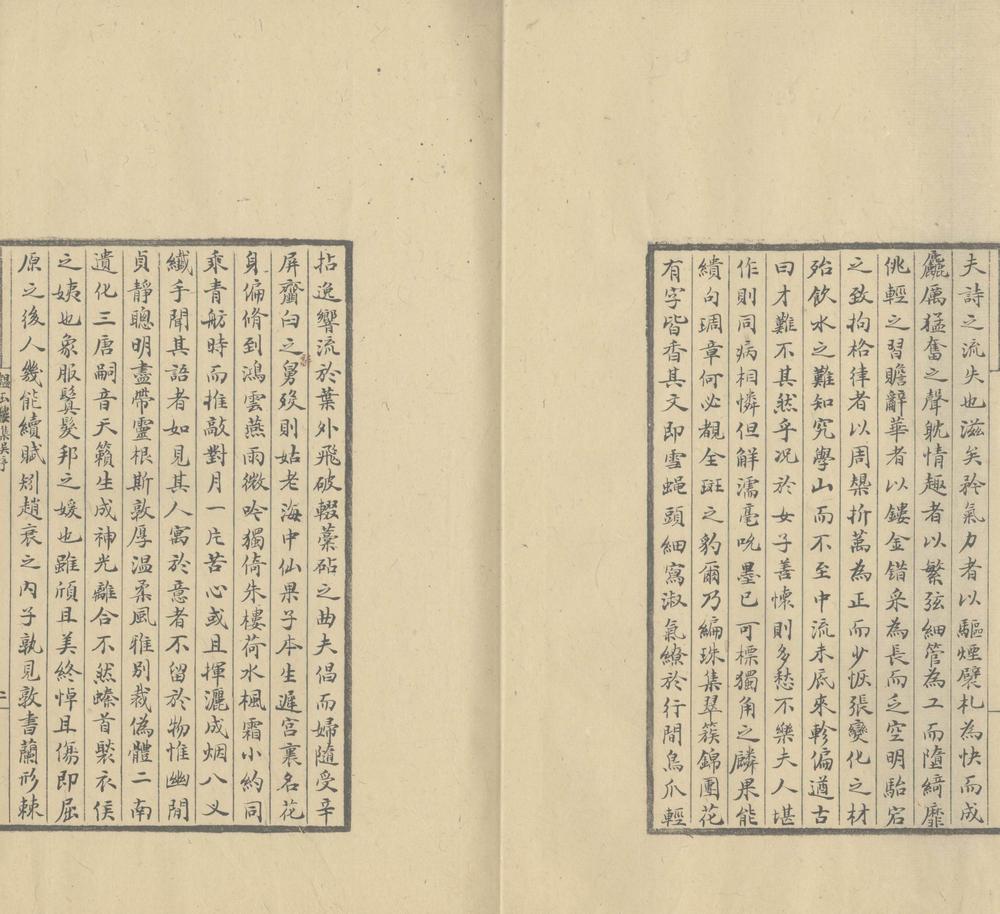 夫詩之流失也滋矣矜氣力者以驅煙襞札為快而成
麤厲猛奮之聲躭情趣者以繁弦細管為工而墮綺靡
佻輕之習贍辭華者以鏤金錯采為長而乏空明駘宕
之致拘格律者以周槼折萬為正而少恢張變化之材
殆飲水之難知究學山而不至中流未底來軫偏遒古
曰才難不其然乎况於女子善懷則多愁不樂夫人堪
作則同病相憐但解濡毫吮墨已可標獨角之麟果能
繢句琱章何必覩全斑之豹爾乃編珠集翠簇錦團花
有字皆香其文即雪蠅頭細寫淑氣繚於行間鳥爪輕
拈逸響流於葉外飛破輟藁砧之曲夫倡而婦隨受辛
屏齏臼之舅歿則姑老海中仙果子本生遲宮裏名花
身偏脩到鴻雲燕雨微吟獨倚朱樓荷水楓霜小約同
乘青舫時而推敲對月一片苦心或且揮灑成烟八乂
纖手聞其語者如見其人寓於意者不留於物惟幽閒
貞靜聰明盡帶靈根斯敦厚温柔風雅別裁偽體二南
遺化三唐嗣音天籟生成神光離合不然螓首褧衣侯
之姨也象服鬒髮邦之媛也雖頎且美終悼且傷即屈
原之後人幾能續賦矧趙衰之內子孰見敦書蘭形棘
韞玉樓集吳序
二